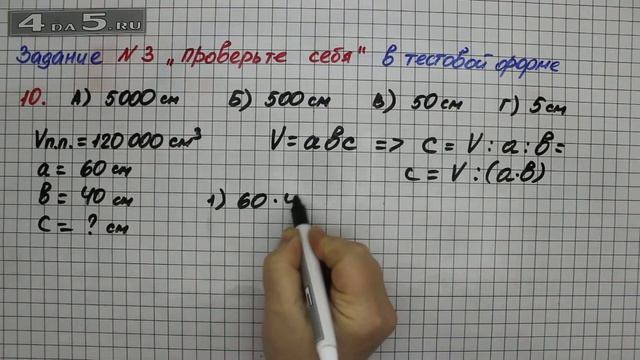 4 DA 5.RU
Задание №3 „Проверьте себя" в тестовой форме
10. А) 5000 см Б) 500 см В) 50 см Г) 5 см
Vп.п. = 120 000 см³
V = abc => c = V : a : b =
a = 60 см
c = V : (a·b)
b = 40 см
1) 60 · 4
c = ? см